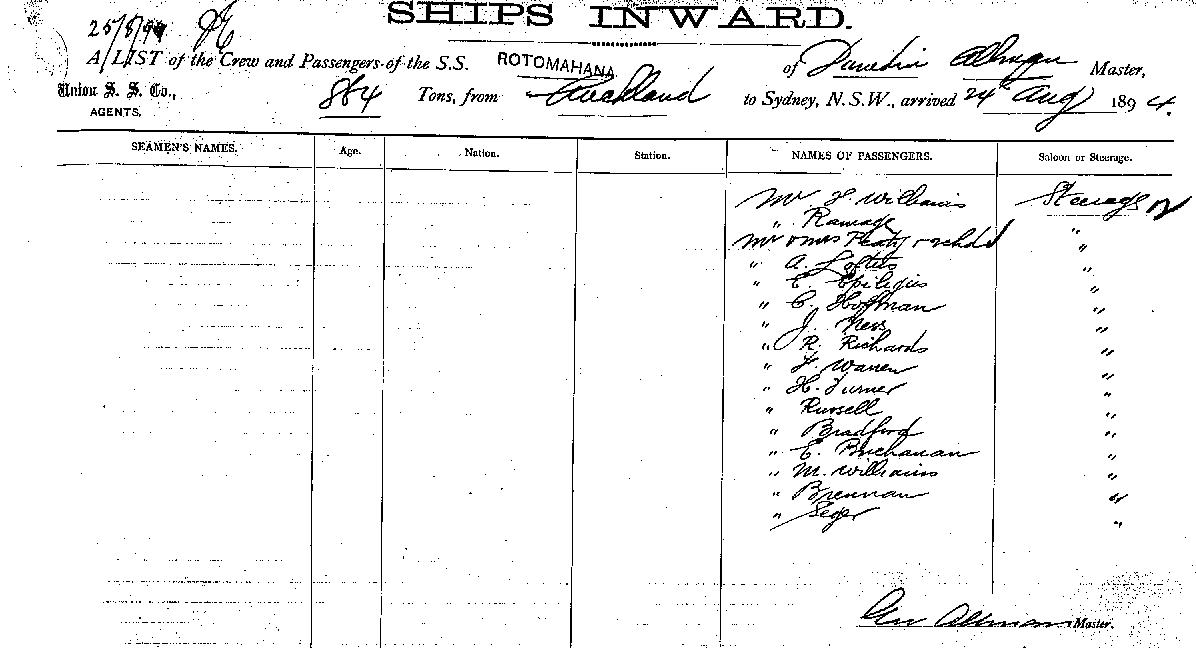 SHIPS INWARD.
25/8/94
A LIST of the Crew and Passengers of the S.S. ROTOMAHANA of Dunedin Allman Master,
Union S. S. Co., AGENTS, 864 Tons, from Auckland to Sydney, N.S.W., arrived 24th Aug 1894.
SEAMEN'S NAMES. Age. Nation. Station. NAMES OF PASSENGERS. Saloon or Steerage.
Mr F. Williams Steerage
" Ramage "
Mr & Mrs & "
" A. Loftus "
" E. "
" C. Hoffman "
" J. Ness "
" R. Richards "
" F. Warren "
" H. Turner "
" Russell "
" Bradford "
" E. Buchanan "
" M. Williams "
" Brennan "
" Seger "
Allman Master.